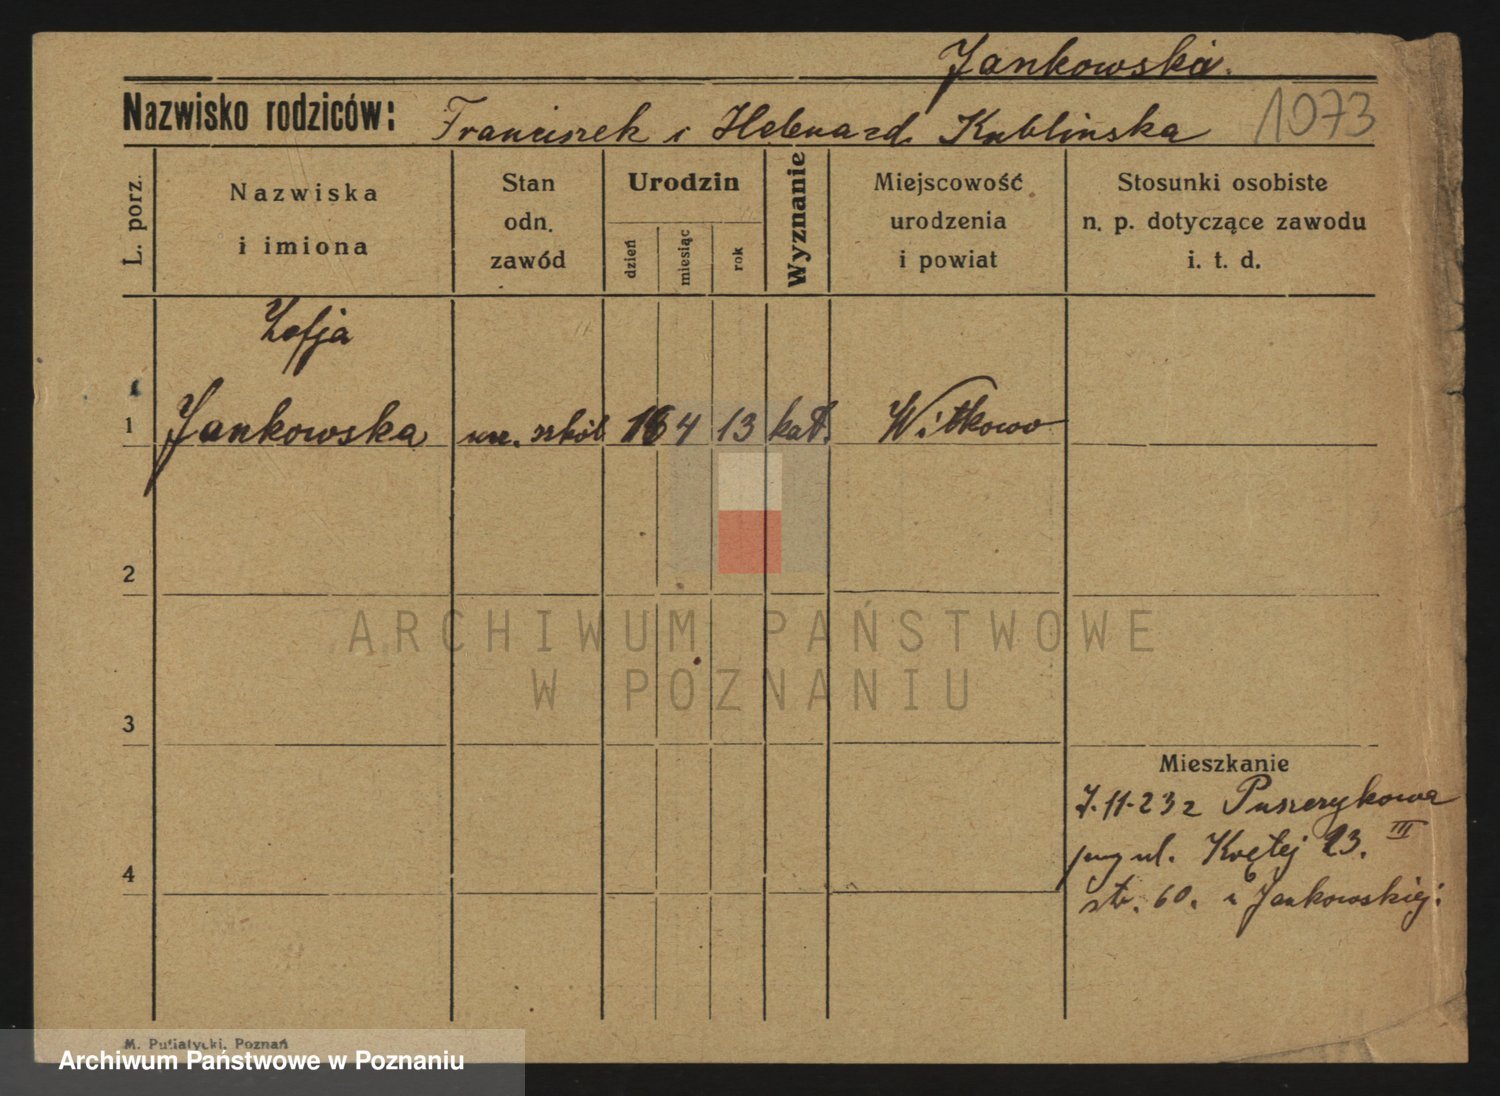 Jankowska.
Nazwisko rodziców: Franciszek i Helena zd. Kublinska 1073
L. porz.
Nazwiska
i imiona
Stan
odn.
zawód
Urodzin
dzień
miesiąc
rok
Wyznanie
Miejscowość
urodzenia
i powiat
Stosunki osobiste
n. p. dotyczące zawodu
i. t. d.
Zofja
1 Jankowska ucz. szkół 16 4 13 kat. Witkowo
2
ARCHIWUM PAŃSTWOWE
W POZNANIU
3
Mieszkanie
7.11.23 z Puszczykowa
przy ul. Krętej 23. III
4
str. 60. u Jankowskiej.
M. Putiatycki, Poznań
Archiwum Państwowe w Poznaniu